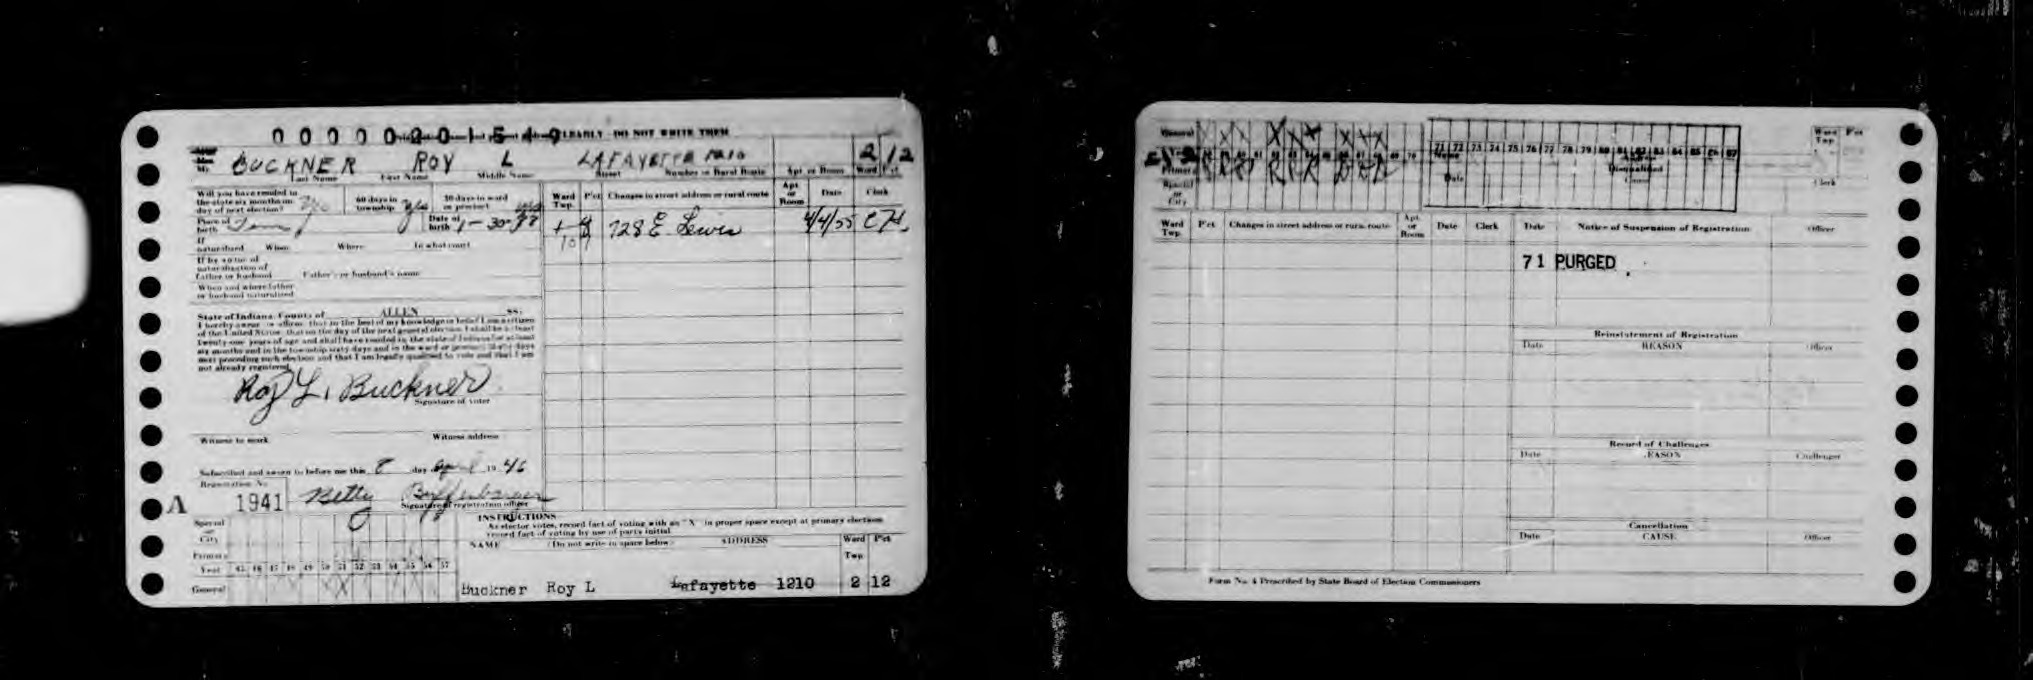 00000201549 CLEARLY - DO NOT WRITE THEM
Mr. BUCKNER ROY L LAFAYETTE 1210 2 12
Last Name First Name Middle Name Street Number or Rural Route Apt. or Room Ward Pct.
Will you have resided in the state six months on day of next election? Yes 60 days in township yes 30 days in ward or precinct yes
Place of birth Tenn Date of birth 1-30-
If naturalized When Where In what court
If by virtue of naturalization of father or husband Father's or husband's name
When and where father or husband naturalized
State of Indiana, County of ALLEN SS:
I hereby swear or affirm that to the best of my knowledge or belief I am a citizen
of the United States, that on the day of the next general election I shall be at least
twenty-one years of age and shall have resided in the state of Indiana for at least
six months and in the township sixty days and in the ward or precinct thirty days
next preceding such election and that I am legally qualified to vote and that I am
not already registered.
Roy L. Buckner
Signature of voter
Witness to mark Witness address
Subscribed and sworn to before me this 8 day April 19 46
Registration No.
A 1941 Betty
Signature of registration officer
Ward Twp. Pct Changes in street address or rural route Apt. or Room Date Clerk
728 E Lewis 4/4/55 CH
INSTRUCTIONS
As elector votes, record fact of voting with an "X" in proper space except at primary elections
record fact of voting by use of party initial.
NAME (Do not write in space below) ADDRESS Ward Twp. Pct
Buckner Roy L Lafayette 1210 2 12
Special or City
Primary
Year 45 46 47 48 49 50 51 52 53 54 55 56 57
General
General
Primary
Special or City
71 72 73 74 75 76 77 78 79 80 81 82 83 84 85 86 87
Name
Date
Disqualified
Cause
Ward Twp. Pct
Clerk
Ward Twp. Pct Changes in street address or rural route Apt. or Room Date Clerk Date Notice of Suspension of Registration Officer
71 PURGED
Reinstatement of Registration
Date REASON Officer
Record of Challenges
Date REASON Challenger
Cancellation
Date CAUSE Officer
Form No. 4 Prescribed by State Board of Election Commissioners